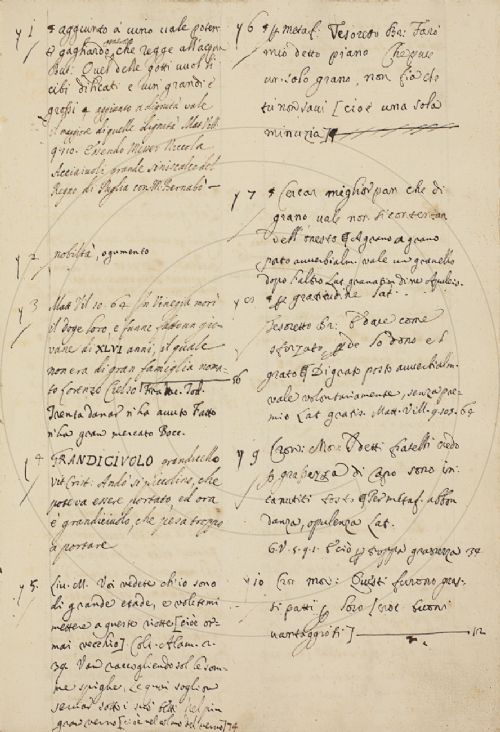 y 1 § aggiunto à uino uale potente
e gagliardo, che regge all'acqua
But. Quel che gotti vuol di
cibi dilicati e vin grandi e
grossi e aggiunto a dignità vale
il maggior di quelle dignità Mat. Vill.
9. 10. Essendo Miser Niccola
Acciaiuoli grande siniscalco del
Regno di Puglia con M. Bernabò —
y 2 nobiltà, ogumento
y 3 Matt Vil 10. 64. In Vinegia morì
il doge loro, e funne fatto un gio-
vane di XLVI anni, il quale
non era di gran famiglia noma-
to Lorenzo Celso
Trenta danar n'ha avuto Fatto
n'ha gran mercato Bocc.
y 4 GRANDICIVOLO grandicello
Vit Crist. Andò sì piccolino, che
poteva essere portato, ed ora
è grandiciuolo, che pesa troppo
a portare
y 5. Liv. M. Voi vedete ch'io sono
di grande etade, e voletemi
mettere a queste riotte [cioè or-
mai vecchio] Coll. Alam. 2.
39. Van raccogliendo sol le som-
me spighe, Le quai soglion
serbar sotto i suoi tetti Nel più
gran verno [cioè nel colmo del verno] 74
y 6 § p metaf. Tesoretto Br: Farò
mio detto piano Che pure
un solo grano, non fia che
tu non savi [cioè una sola
minuzia]
y 7 § Cercar miglior pan che di
grano vale non si contentar
dell'onesto § A grano a grano
posto avverbialm. vale un granello
dopo l'altro Lat. granatim
§ gratitudine Lat. —
Tesoretto Br: E dave come
sforzato, do lo dono e l
grato § Di grato posto avverbialm.
vale volontariamente, senza pre-
mio Lat gratis. Matt. Vill. 9. 64
y 9 Cron: Mo: I detti fratelli credo
p grassezza di capo sono in
canutiti tosto § Per metaf. abbon
danza, opulenza Lat.
G. V. 5. 9. 1. E ciò p troppa grassezza 34
y 10 Cro mor: Questi furono gras-
si patti p loro [cioè buoni
vantaggiosi] 12